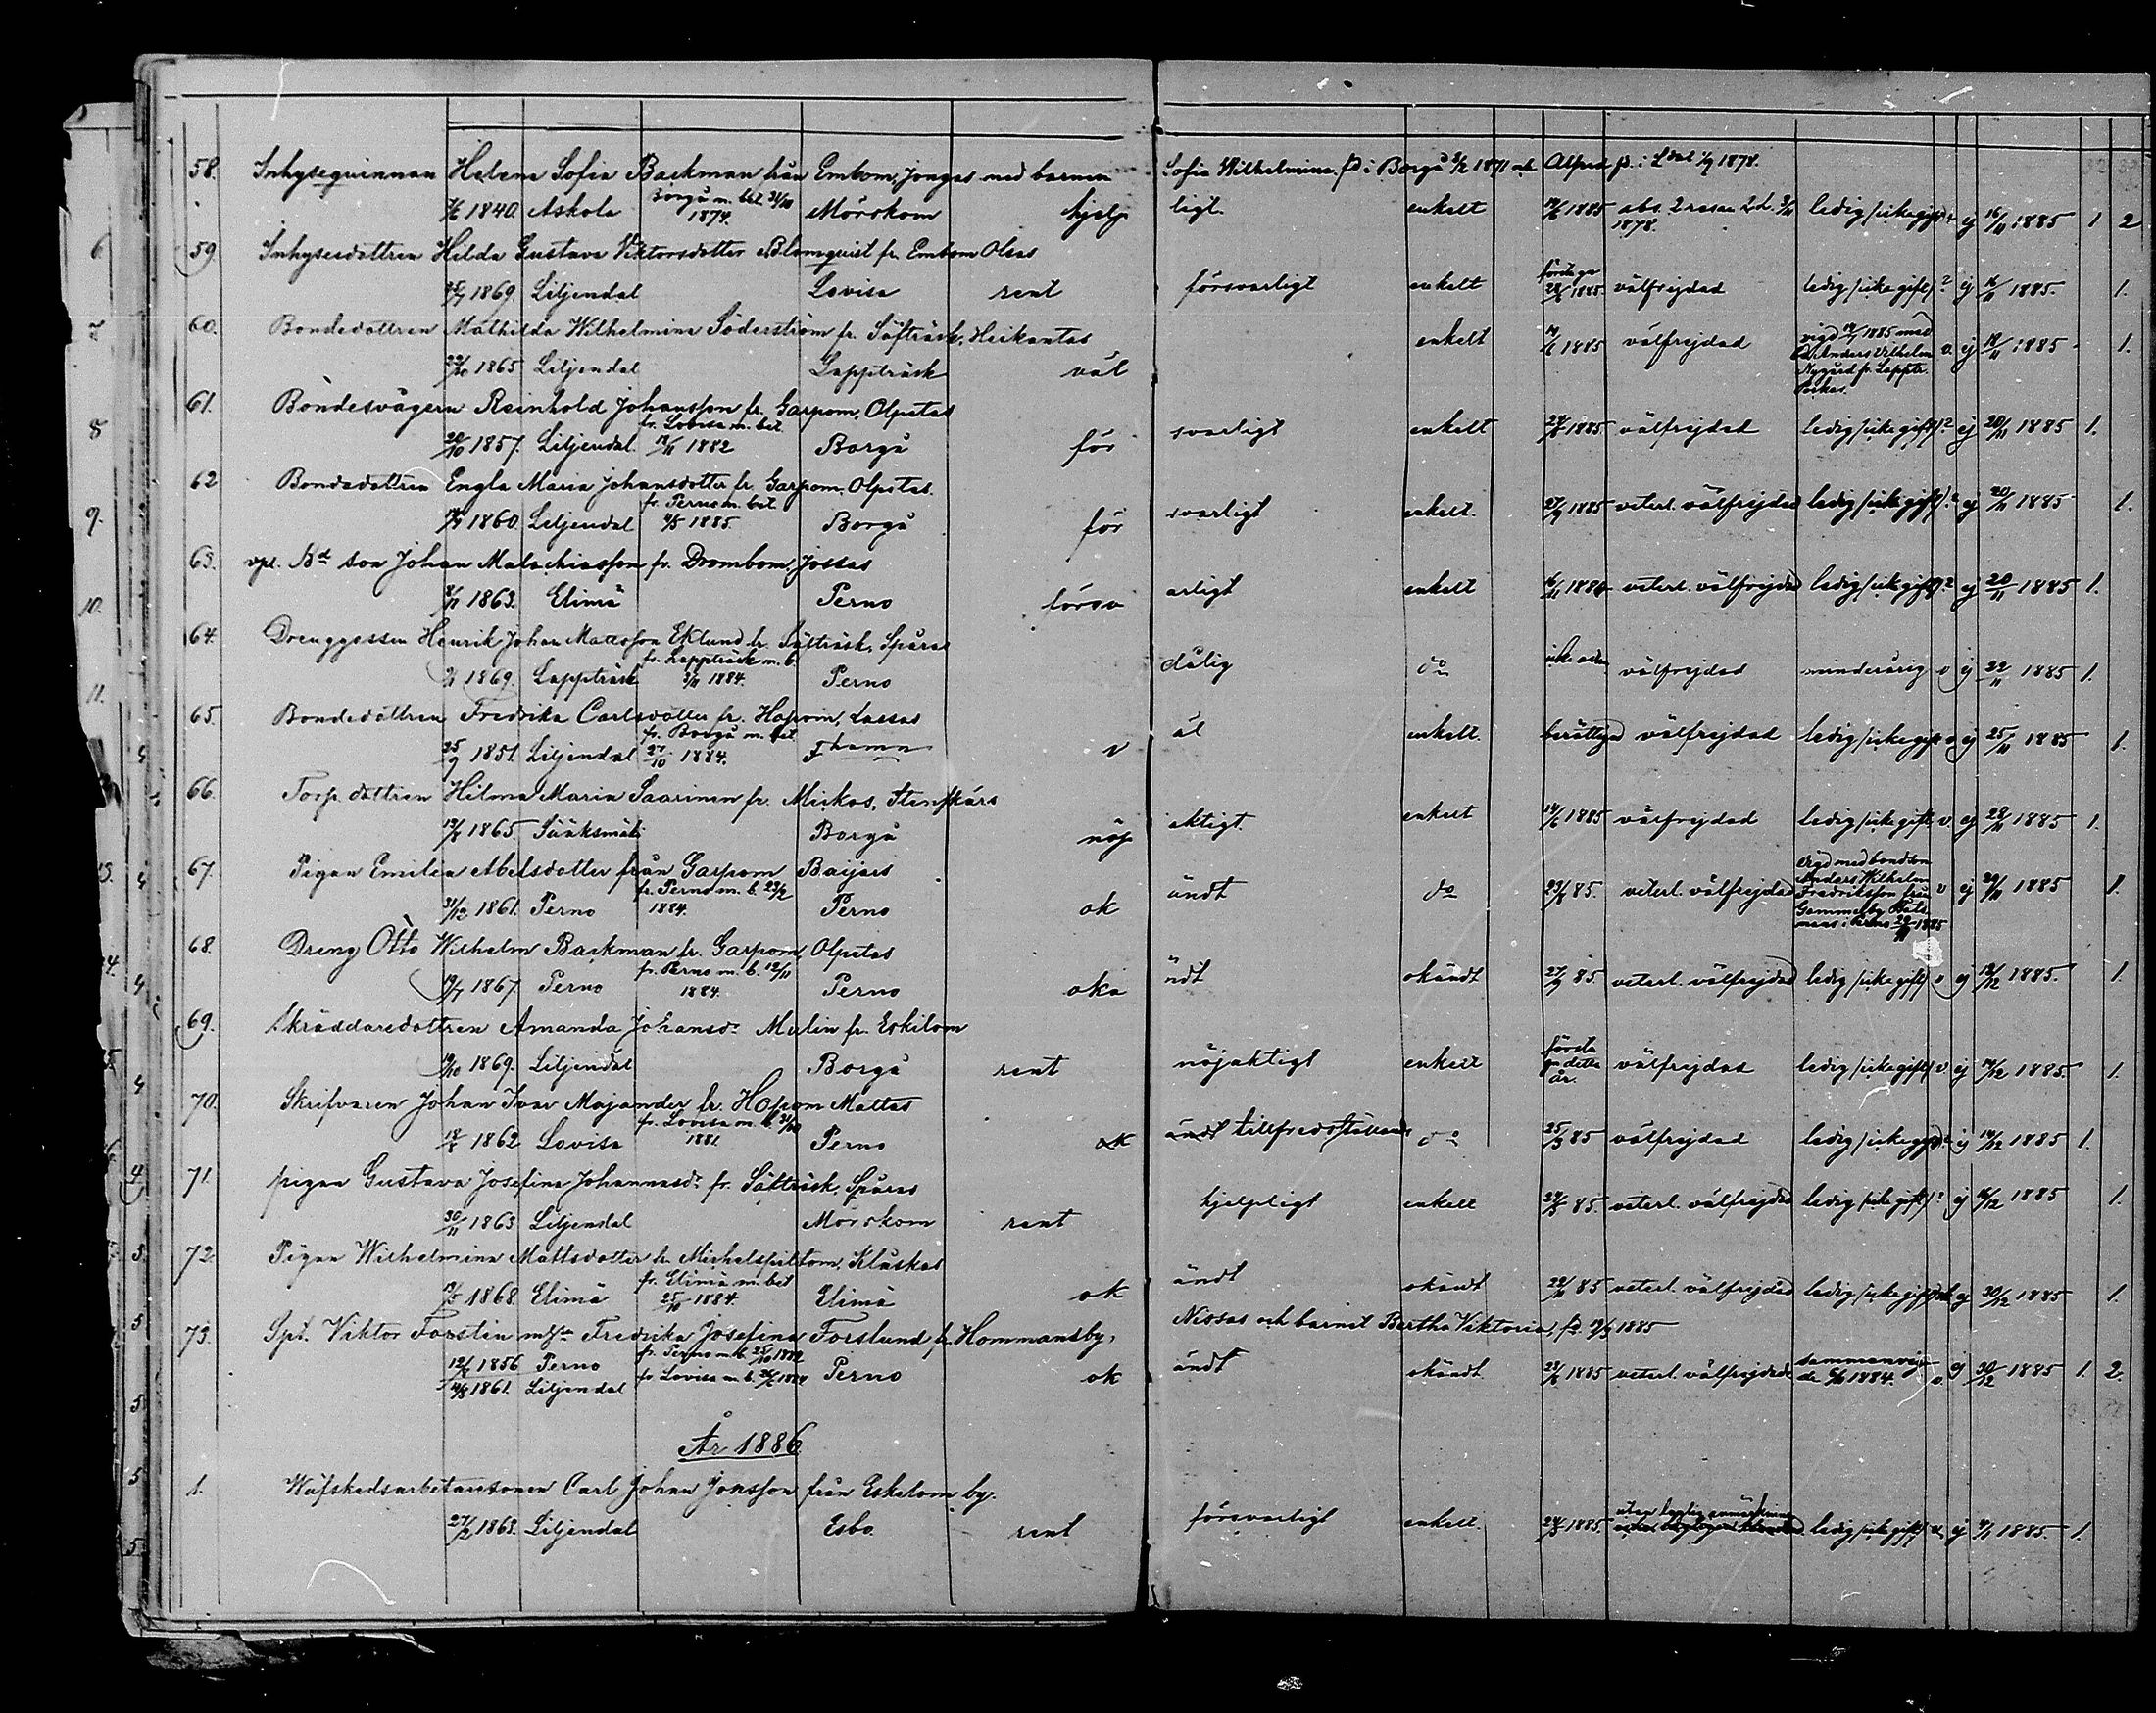 58. Inhysequinnan Helena Sofia Backman från Embom, Jongas med barnen Sofia Wilhelmina fd i Borgå 1871 och Alfred fd. i Ldal 1878.
1840. Askola Borgå m. bet. 31/10 1874. Mörskom hjelp ligt. enkelt 1885 abs. 2 resan 1878. ledig /icke gift/ ej 16/11 1885 1 2
59. Inhysesdottren Hilda Gustava Viktorsdotter Blomquist fr. Embom Olsas
1869. Liljendal Lovisa rent försvarligt enkelt första gg 1885. välfrejdad ledig /icke gift/? ej 16/11 1885. 1.
60. Bondedottren Mathilda Wilhelmina Söderström fr. Säfträsk, Heikantas
1865 Liljendal Lappträsk väl enkelt 1885 välfrejdad vigd 1885 med Anders Vilhelm Nygård fr. Lapptr. v. ej 18/11 1885 1.
61. Bondesvågern Reinhold Johansson fr. Garpom, Olpetas
20/10 1857. Liljendal. fr. Lovisa m. bet. 1882 Borgå för svarligt enkelt 1885 välfrejdad ledig /icke gift/? ej 20/11 1885 1.
62 Bondedottren Engla Maria Johansdotter fr. Garpom, Olpetas.
1860. Liljendal fr. Perno m. bet. 1885. Borgå för svarligt enkelt. 27/9 1885 veterl. välfrejdad ledig /icke gift/? ej 20/11 1885 1.
63. vpl. Bd son Johan Malachiasson fr. Drombom, Jossas
1863. Elimä Perno försv arligt enkelt veterl. välfrejdad ledig /icke gift/? ej 20/11 1885 1.
64. Drenggossen Henrik Johan Mattsson Eklund fr. Sätträsk, Spåras
1869. Lappträsk fr. Lappträsk m. b. 3/11 1884. Perno dålig do välfrejdad minderårig v ej 22/11 1885 1.
65. Bondedottren Fredrika Carlsdotter fr. Hopom, Lassas
25/9 1851. Liljendal fr. Borgå m. bet 27/10 1884. v äl enkelt. välfrejdad ledig /icke gift v ej 25/11 1885 1.
66. Torp. dottren Hilma Maria Saarinen fr. Mickos, Stenskärs
1865. Sääksmäki Borgå nöj aktigt. enkelt 14/6 1885 välfrejdad ledig /icke gift v ej 28/11 1885 1.
67. Pigan Emilia Abelsdotter från Garpom Baijars
31/12 1861. Perno fr. Perno m. b. 1884. Perno ok ändt do 85. veterl. välfrejdad vigd med bondson Anders Wilhelm Fredriksson från Gammelby i Perno 1885 v ej 29/11 1885 1.
68. Dreng Otto Wilhelm Backman fr. Garpom Olpetas
1867. Perno fr. Perno m. b. 12/11 1884. Perno okä ndt okändt 27/9 85. veterl. välfrejdad ledig /icke gift/ v ej 1885. 1.
69. Skräddaredottren Amanda Johansdr Malin fr. Eskilom
19/10 1869. Liljendal Borgå rent nöjaktigt enkelt första gg detta år. välfrejdad ledig /icke gift/ v ej 1885. 1.
70. Skrifvaren Johan Ivar Majander fr. Hopom Mattas
1862 Lovisa fr. Lovisa m. b. 1881. Perno ok ändt tillfredsställande do 85 välfrejdad ledig /icke gift/? ej 14/12 1885 1.
71. pigan Gustava Josefina Johannasdr fr. Sätträsk, Spåras
30/11 1863 Liljendal Mörskom rent hjelpligt enkelt 85. veterl. välfrejdad ledig /icke gift/? ej 16/12 1885 1.
72. Pigan Wilhelmina Mattsdotter fr. Michelspiltom, Kluskas
1868 Elimä fr. Elimä m. bet 25/10 1884. Elimä ok ändt okändt 85 veterl. välfrejdad ledig /icke gift/ ej 30/12 1885 1.
73. Spt. Viktor Forstén m. h. Fredrika Josefina Forslund fr. Hommansby, Nissas och barnet Bertha Viktoria, fd. 1885
1856 Perno fr. Perno m. b. 25/10 1882 Perno ok ändt okändt. 1885 veterl. välfrejdade sammanvigde 1884. v. ej 30/12 1885 1. 2.
1861. Liljendal fr. Lovisa m. b. 1884
År 1886.
1. Wäfskedsarbetaresonen Carl Johan Jonsson från Eskelom by.
27/2 1863. Liljendal Esbo. rent försvarligt enkelt. 1885. utan laglig anmärkning ledig /icke gift/ ej 1885. 1.